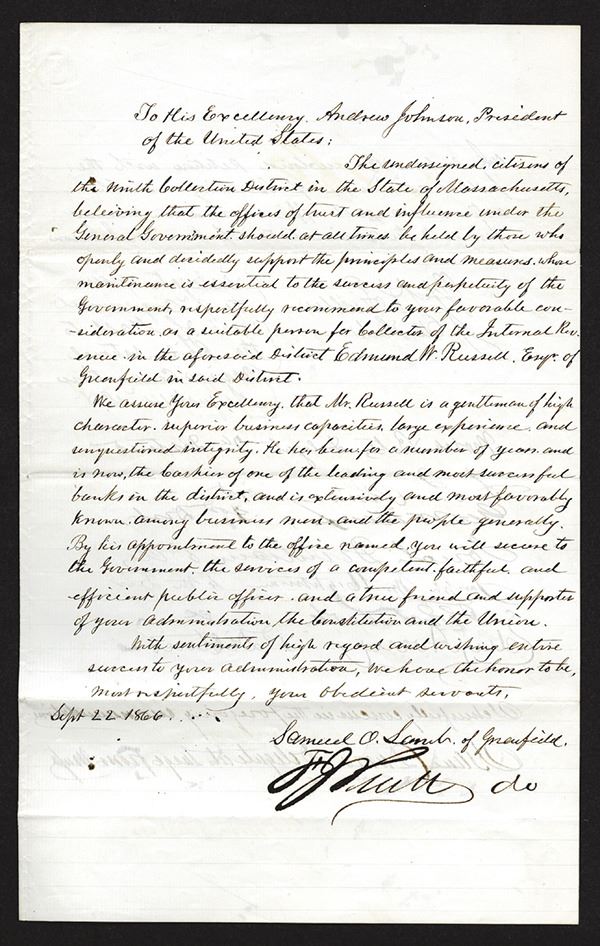 To His Excellency, Andrew Johnson, President
of the United States;
The undersigned, citizens of
the Ninth Collection District in the State of Massachusetts,
believing that the offices of trust and influence under the
General Government should at all times be held by those who
openly and decidedly support the principles and measures, whose
maintinance is essential to the success and perpetuity of the
Government, respectfully recommend to your favorable con-
-sideration as a suitable person for Collector of the Internal Rev-
enue in the aforesaid District Edmund W. Russell, Esqr. of
Greenfield in said District.
We assure Your Excellency, that Mr. Russell is a gentleman of high
character, superior business capacities, large experience, and
unquestioned integrity. He has been for a number of years, and
is now, the Cashier of one of the leading and most successful
banks in the district, and is extensively and most favorably
known, among business men, and the people generally.
By his appointment to the office named, you will secure to
the Government, the services of a competent, faithful, and
efficient public officer, and a true friend and supporter
of your administration, the Constitution and the Union.
With sentiments of high regard and wishing entire
success to your administration, we have the honor to be,
most respectfully, your obedient servants,
Sept 22 1866.
Samuel O. Lamb. of Greenfield.
do